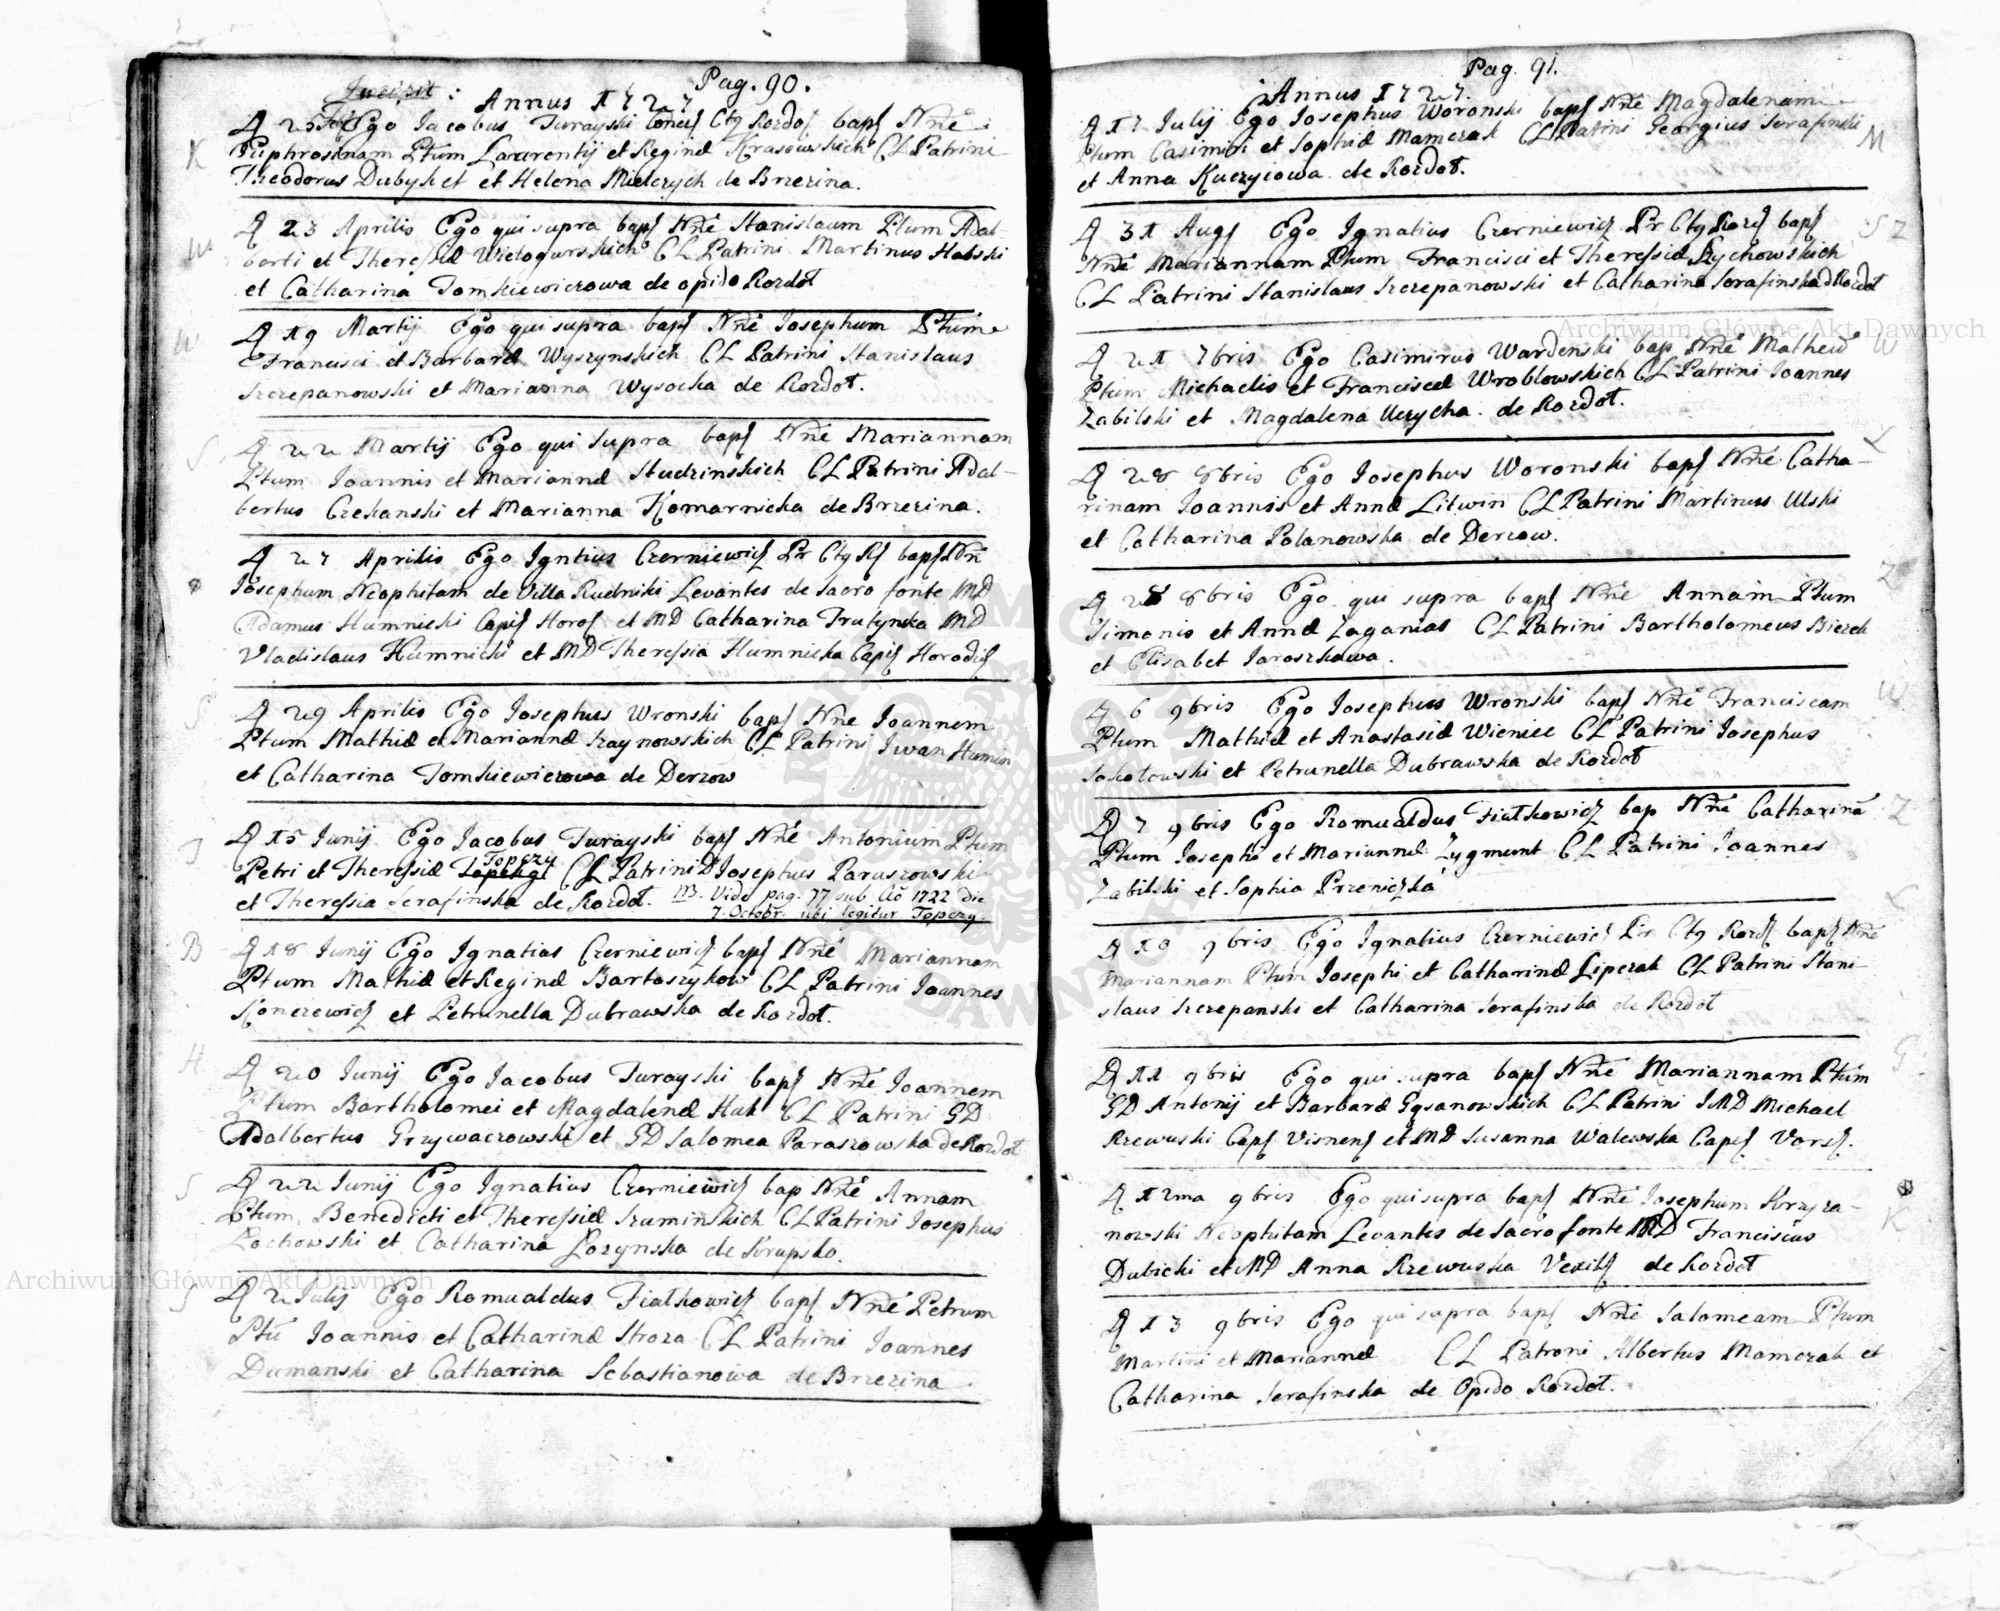 Pag. 90.
Incipit : Annus 1727
Ego Jacobus Turayski bapf Nne
Euphrosinam Ptum Laurentij et Reginæ Krasowskich CL Patrini
Theodorus Dubyk et et Helena Mielczych de Brzezina.
K
D 23 Aprilis Ego qui supra bapf Nne Stanislaum Ptum Adal-
berti et Theressiæ Wielogurskich CL Patrini Martinus Habski
et Catharina Tomkiewiczowa de opido Rozdoł
W
D 19 Martij Ego qui supra bapf Nne Josephum Ptum
Francisci et Barbaræ Wyszynskich CL Patrini Stanislaus
Szczepanowski et Marianna Wysocka de Rozdoł.
W
D 22 Martij Ego qui supra bapf Nne Mariannam
Ptum Joannis et Mariannæ Studzinskich CL Patrini Adal-
bertus Czekanski et Marianna Komarnicka de Brzezina.
S
D 27 Aprilis Ego Igntius Czerniewicz Pr Ctg Rf bapf Nne
Josephum Neophitam de Villa Rudniki Levantes de Sacro fonte MD
Adamus Humnicki Capif Horof et MD Catharina Trutynska MD
Vladislaus Humnicki et MD Theressia Humnicka Capif Horodif
D 29 Aprilis Ego Josephus Wronski bapf Nne Joannem
Ptum Mathiæ et Mariannæ Szaynowskich CL Patrini Iwan Humin
et Catharina Tomkiewiczowa de Derzow
S
D 15 Junij Ego Jacobus Turayski bapf Nne Antonium Ptum
Topczy
Petri et Theressiæ CL Patrini D Josephus Paraszowski
et Theressia Serafinska de Rozdoł. NB. Vide pag. 77 sub Aō 1722 die
7 Octobr. ubi legitur Topczy.
T
D 18 Junij Ego Ignatias Czerniewicz bapf Nne Mariannam
Ptum Mathiæ et Reginæ Bartoszykow CL Patrini Joannes
Koncewicz et Petrunella Dubrawska de Rozdoł.
B
D 20 Junij Ego Jacobus Turayski bapf Nne Joannem
Ptum Bartholomei et Magdalenæ Huk CL Patrini GD
Adalbertus Grzywaczowski et GD Salomea Paraszowska de Rozdoł
H
D 22 Junij Ego Ignatius Czerniewicz bap Nne Annam
Ptum Benedicti et Theressiæ Szuminskich CL Patrini Josephus
Łochowski et Catharina Łozynska de Krupsko.
S
D 2 Julij Ego Romualdus Fiałkowicz bapf Nne Petrum
Ptū Joannis et Catharinæ Stroza CL Patrini Joannes
Dumanski et Catharina Sebastianowa de Brzezina
S
Pag. 91.
Annus 1727.
D 17 Julij Ego Josephus Woronski bapf Nne Magdalenam
Ptum Casimiri et Sophiæ Mamczak CL Patrini Georgius Serafinski
et Anna Kuczyiowa de Rozdoł.
M
D 31 Augf Ego Ignatius Czerniewicz Pr Ctg Rozf bapf
Nne Mariannam Ptum Francisci et Theressiæ Szychowskich
CL Patrini Stanislaus Szczepanowski et Catharina Serafinska d Rozdoł
SZ
D 21 7bris Ego Casimirus Wardenski bap Nne Matheū
Ptum Michaelis et Franciscæ Wroblowskich CL Patrini Joannes
Zabilski et Magdalena Uczycha de Rozdoł.
W
D 28 8bris Ego Josephus Woronski bapf Nne Catha-
rinam Joannis et Annæ Litwin CL Patrini Martinus Ulski
et Catharina Polanowska de Derzow.
L
D 28 8bris Ego qui supra bapf Nne Annam Ptum
Simonis et Annæ Zaganias CL Patrini Bartholomeus Bierek
et Elisabet Jaroszkowa.
Z
D 6 9bris Ego Josephus Wronski bapf Nne Franciscam
Ptum Mathiæ et Anastasiæ Wieniec CL Patrini Josephus
Sokołowski et Petrunella Dubrawska de Rozdoł
W
D 7 9bris Ego Romualdus Fiałkowicz bap Nne Catharinā
Ptum Josephi et Mariannæ Zygmunt CL Patrini Joannes
Zabilski et Sophia Przeniczka
Z
D 10 9bris Ego Ignatius Czerniewicz Pr Ctg Rozf bapf Nne
Mariannam Ptum Josephi et Catharinæ Lipczak CL Patrini Stani-
slaus Szczepanski et Catharina Serafinska de Rozdoł
L
D 11 9bris Ego qui supra bapf Nne Mariannam Ptum
GD Antonij et Barbaræ Gysanowskich CL Patrini IMD Michael
Rzewuski Capf Visnenf et MD Susanna Walewska Capif Varsf.
G
D 12ma 9bris Ego qui supra bapf Nne Josephum Krzyza-
nowski Neophitam Levantes de Sacro fonte MD Franciscus
Dubicki et MD Anna Rzewuska Vexilf de Rozdoł
K
D 13 9bris Ego qui supra bapf Nne Salomeam Ptum
Martini et Mariannæ CL Patroni Albertus Mamczak et
Catharina Serafinska de Opido Rozdoł.
Archiwum Główne Akt Dawnych
Archiwum Główne Akt Dawnych
ARCHIWUM GŁÓWNE AKT DAWNYCH